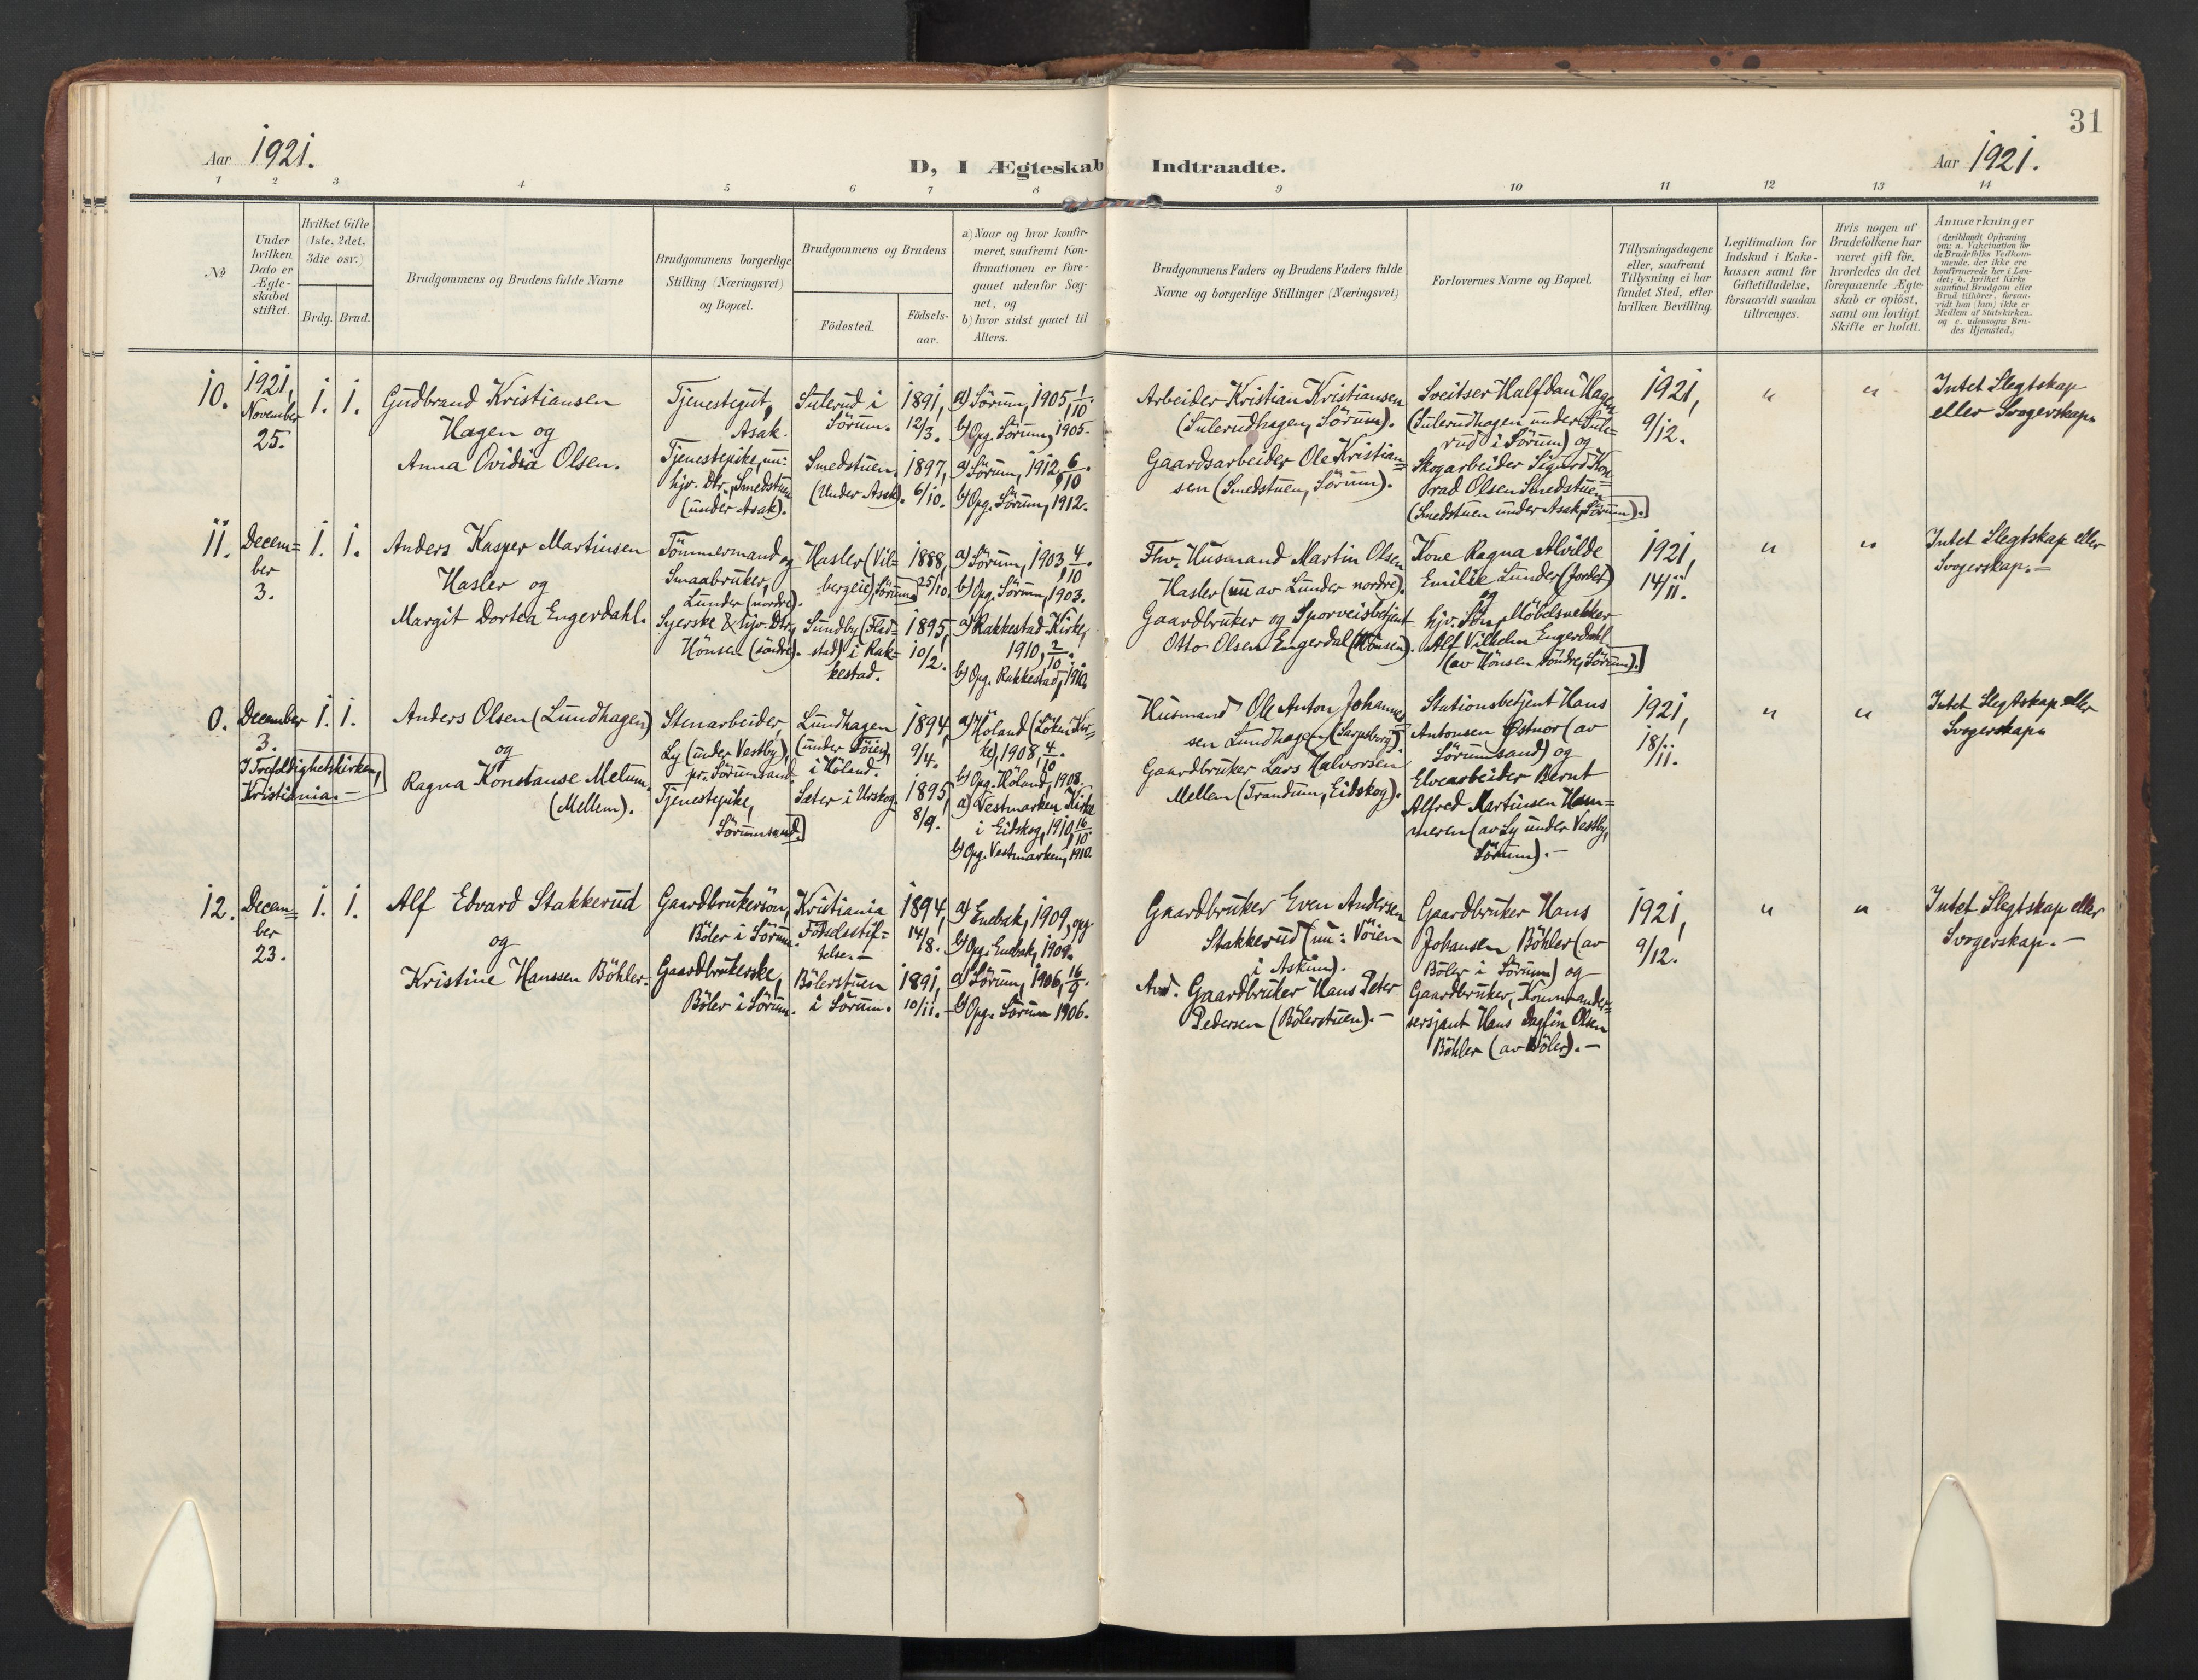 31
Aar 1921.
D, I Ægteskab Indtraadte.
Aar 1921.
1 2 3 4 5 6 7 8 9 10 11 12 13 14
No
Under hvilken Dato er Ægteskabet stiftet.
Hvilket Gifte (1ste, 2det, 3die osv.)
Brdg. Brud.
Brudgommens og Brudens fulde Navne
Brudgommens borgerlige Stilling (Næringsvei) og Bopæl.
Brudgommens og Brudens
Födested.
Födselsaar.
a) Naar og hvor konfirmeret, saafremt Konfirmationen er foregaaet udenfor Sognet, og
b) hvor sidst gaaet til Alters.
Brudgommens Faders og Brudens Faders fulde Navne og borgerlige Stillinger (Næringsvei)
Forlovernes Navne og Bopæl.
Tillysningsdagene eller, saafremt Tillysning ei har fundet Sted, efter hvilken Bevilling.
Legitimation for Indskud i Enkekassen samt for Giftetilladelse, forsaavidt saadan tiltrænges.
Hvis nogen af Brudefolkene har været gift för, hvorledes da det foregaaende Ægteskab er oplöst, samt om lovligt Skifte er holdt.
Anmærkninger
(deriblandt Oplysning om: a. Vakcination for de Brudefolks Vedkommende, der ikke ere konfirmerede her i Landet; b. hvilket Kirkesamfund Brudgom eller Brud tilhörer, forsaavidt han (hun) ikke er Medlem af Statskirken. og c. udensogns Brudes Hjemsted.)
10.
1921,
November
25.
1. 1.
Gudbrand Kristiansen
Hagen og
Anna Ovidia Olsen.
Tjenestegut,
Asak.
Tjenestepike, nu:
hjv. Dtr., Smedstuen
(under Asak).
Sulerud i
Sörum.
Smedstuen
(Under Asak).
1891,
12/3.
1897,
6/10.
a) Sörum, 1905, 1/10.
b) Opg. Sörum, 1905.
a) Sörum, 1912, 6/10.
b) Opg. Sörum, 1912.
Arbeider Kristian Kristiansen
(Sulerudhagen, Sörum).
Gaardsarbeider Ole Kristian=
sen (Smedstuen, Sörum).
Sveitser Halfdan Hagen
(Sulerudhagen under Sule=
rud i Sörum) og
Skogarbeider Sigurd Kon=
rad Olsen Smedstuen
(Smedstuen under Asak, Sörum).
1921,
9/12.
" "
Intet Slegtskap
eller Svogerskap.
11.
Decem=
ber
3.
1. 1.
Anders Kasper Martinsen
Hasler og
Margit Dortea Engerdahl.
Tömmermand og
Smaabruker,
Lunder (nordre).
Syerske & hjv. Dtr.,
Hönsen (söndre).
Hasler (Vil=
bergeie), Sörum
Sundby (Flad=
stad) i Rak=
kestad.
1888,
25/10.
1895,
10/2.
a) Sörum, 1903, 4/10.
b) Opg. Sörum, 1903.
a) Rakkestad Kirke,
1910, 2/10.
b) Opg. Rakkestad, 1910.
Fhv. Husmand Martin Olsen
Hasler (nu av Lunder nordre).
Gaardbruker og Sporveisbetjent
Otto Olsen Engerdal (Hönsen).
Kone Ragna Alvilde
Emilie Lunder (Jordet)
og
hjv. Sön, Möbelsnekker
Alf Vilhelm Engerdahl
(av Hönsen söndre, Sörum).
1921,
14/11.
" "
Intet Slegtskap eller
Svogerskap. —
0.
December
3.
I Trefoldighetskirken,
Kristiania. —
1. 1.
Anders Olsen (Lundhagen)
og
Ragna Konstanse Melum.
(Mellem).
Stenarbeider,
Ly (under Vestby),
pr. Sörumsand.
Tjenestepike,
Sörumsand.
Lundhagen
(under Töien),
i Höland.
Sæter i Urskog.
1894,
9/4.
1895,
8/9.
a) Höland (Löken Kir=
ke), 1908, 4/10.
b) Opg. Höland, 1908.
a) Vestmarken Kirke
i Eidskog, 1910, 16/10.
b) Opg. Vestmarken, 1910.
Husmand Ole Anton Johannes=
sen Lundhagen (Sarpsborg).
Gaardbruker Lars Halvorsen
Mellem (Trandum, Eidskog).
Stationsbetjent Hans
Antonsen Østnor (av
Sörumsand) og
Elvearbeider Bernt
Alfred Martinsen Ham=
meren (av Ly under Vestby,
Sörum). —
1921,
18/11.
" "
Intet Slegtskap eller
Svogerskap.
12.
Decem=
ber
23.
1. 1.
Alf Edvard Stakkerud
og
Kristine Hanssen Böhler.
Gaardbrukersön,
Böler i Sörum.
Gaardbrukerske,
Böler i Sörum.
Kristiania
Födselsstif=
telse. —
Bölerstuen
i Sörum.
1894,
14/8.
1891,
10/11. —
a) Enebak, 1909, og
b) Opg. Enebak, 1909.
a) Sörum, 1906, 16/9.
b) Opg. Sörum 1906.
Gaardbruker Even Andersen
Stakkerud (nu: Vöien
i Askim).
Avd. Gaardbruker Hans Peter
Pedersen (Bölerstuen). —
Gaardbruker Hans
Johansen Böhler (av
Böler i Sörum) og
Gaardbruker, Kommander=
sersjant Hans Dagfin Olsen
Böhler (av Böler). —
1921,
9/12.
" "
Intet Slegtskap eller
Svogerskap. —